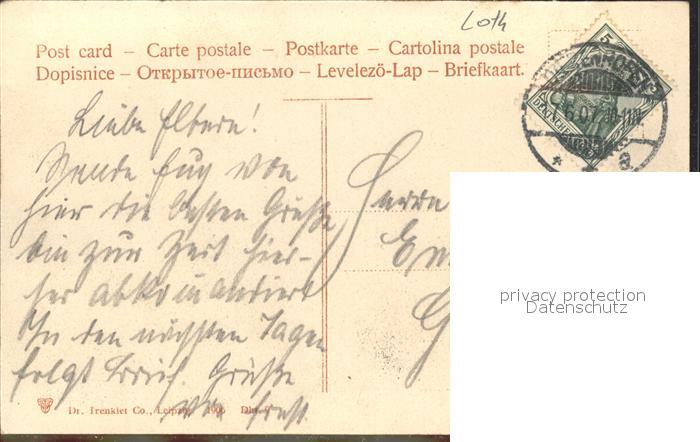 Loth
Post card – Carte postale – Postkarte – Cartolina postale
Dopisnice – Открытое-письмо – Levelező-Lap – Briefkaart.
Liebe Eltern!
Sende Euch von
hier die besten Grüße
bin zur Zeit hier-
her abkommandiert
In den nächsten Tagen
folgt Brief. Grüße
von Ernst
Herrn
privacy protection
Datenschutz
Dr. Trenkler Co., Leipzig. 1906